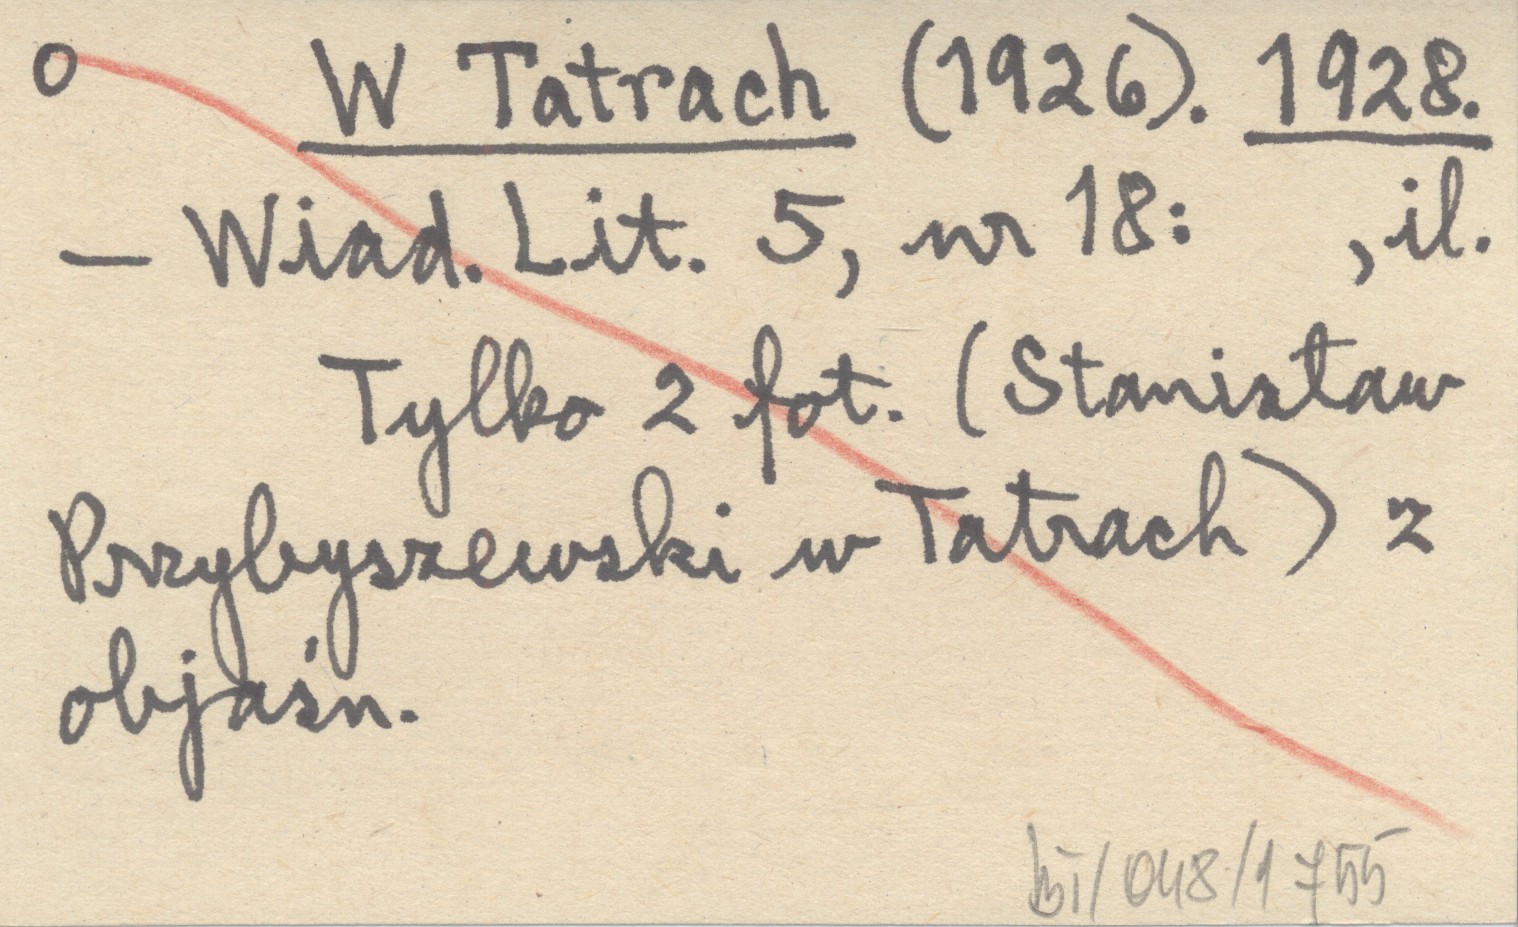 o W Tatrach (1926). 1928.
— Wiad. Lit. 5, nr 18: , il.
Tylko 2 fot. (Stanisław
Przybyszewski w Tatrach) z
objaśn.
/048/1755